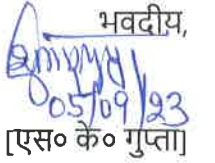 भवदीय,
05/09/23
[एस० के० गुप्ता]